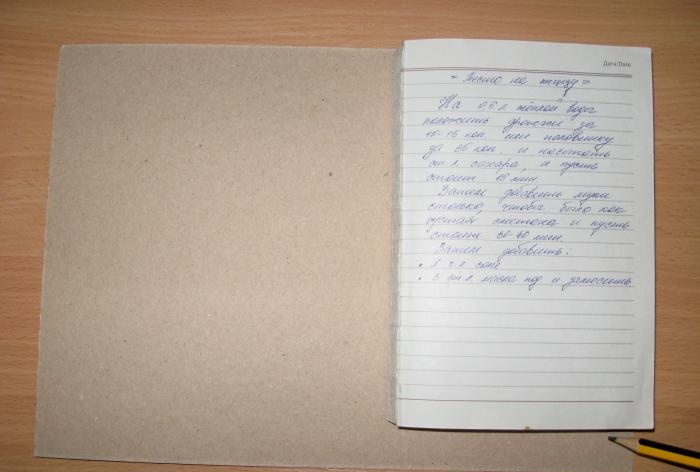 Дата/Date
= Тесто на пиццу =
На 0,5 л. тёплой воды
положить дрожжи за
10-15 коп. или половинку
за 35 коп. и насыпать
ст.л. сахара, и пусть
стоит 15 мин.
Затем добавить муки
столько, чтобы было как
густая сметана и пусть
стоит 30-40 мин.
Затем добавить:
• 1 ч.л. соли
• 3 ст.л. масла под. и замесить